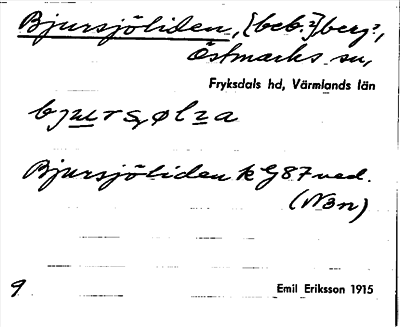 Bjursjöliden, [beb.?] berg?,
Östmarks sn,
Fryksdals hd, Värmlands län
bjursøliza
Bjursjöliden k G87 ned.
(N3n)
9
Emil Eriksson 1915